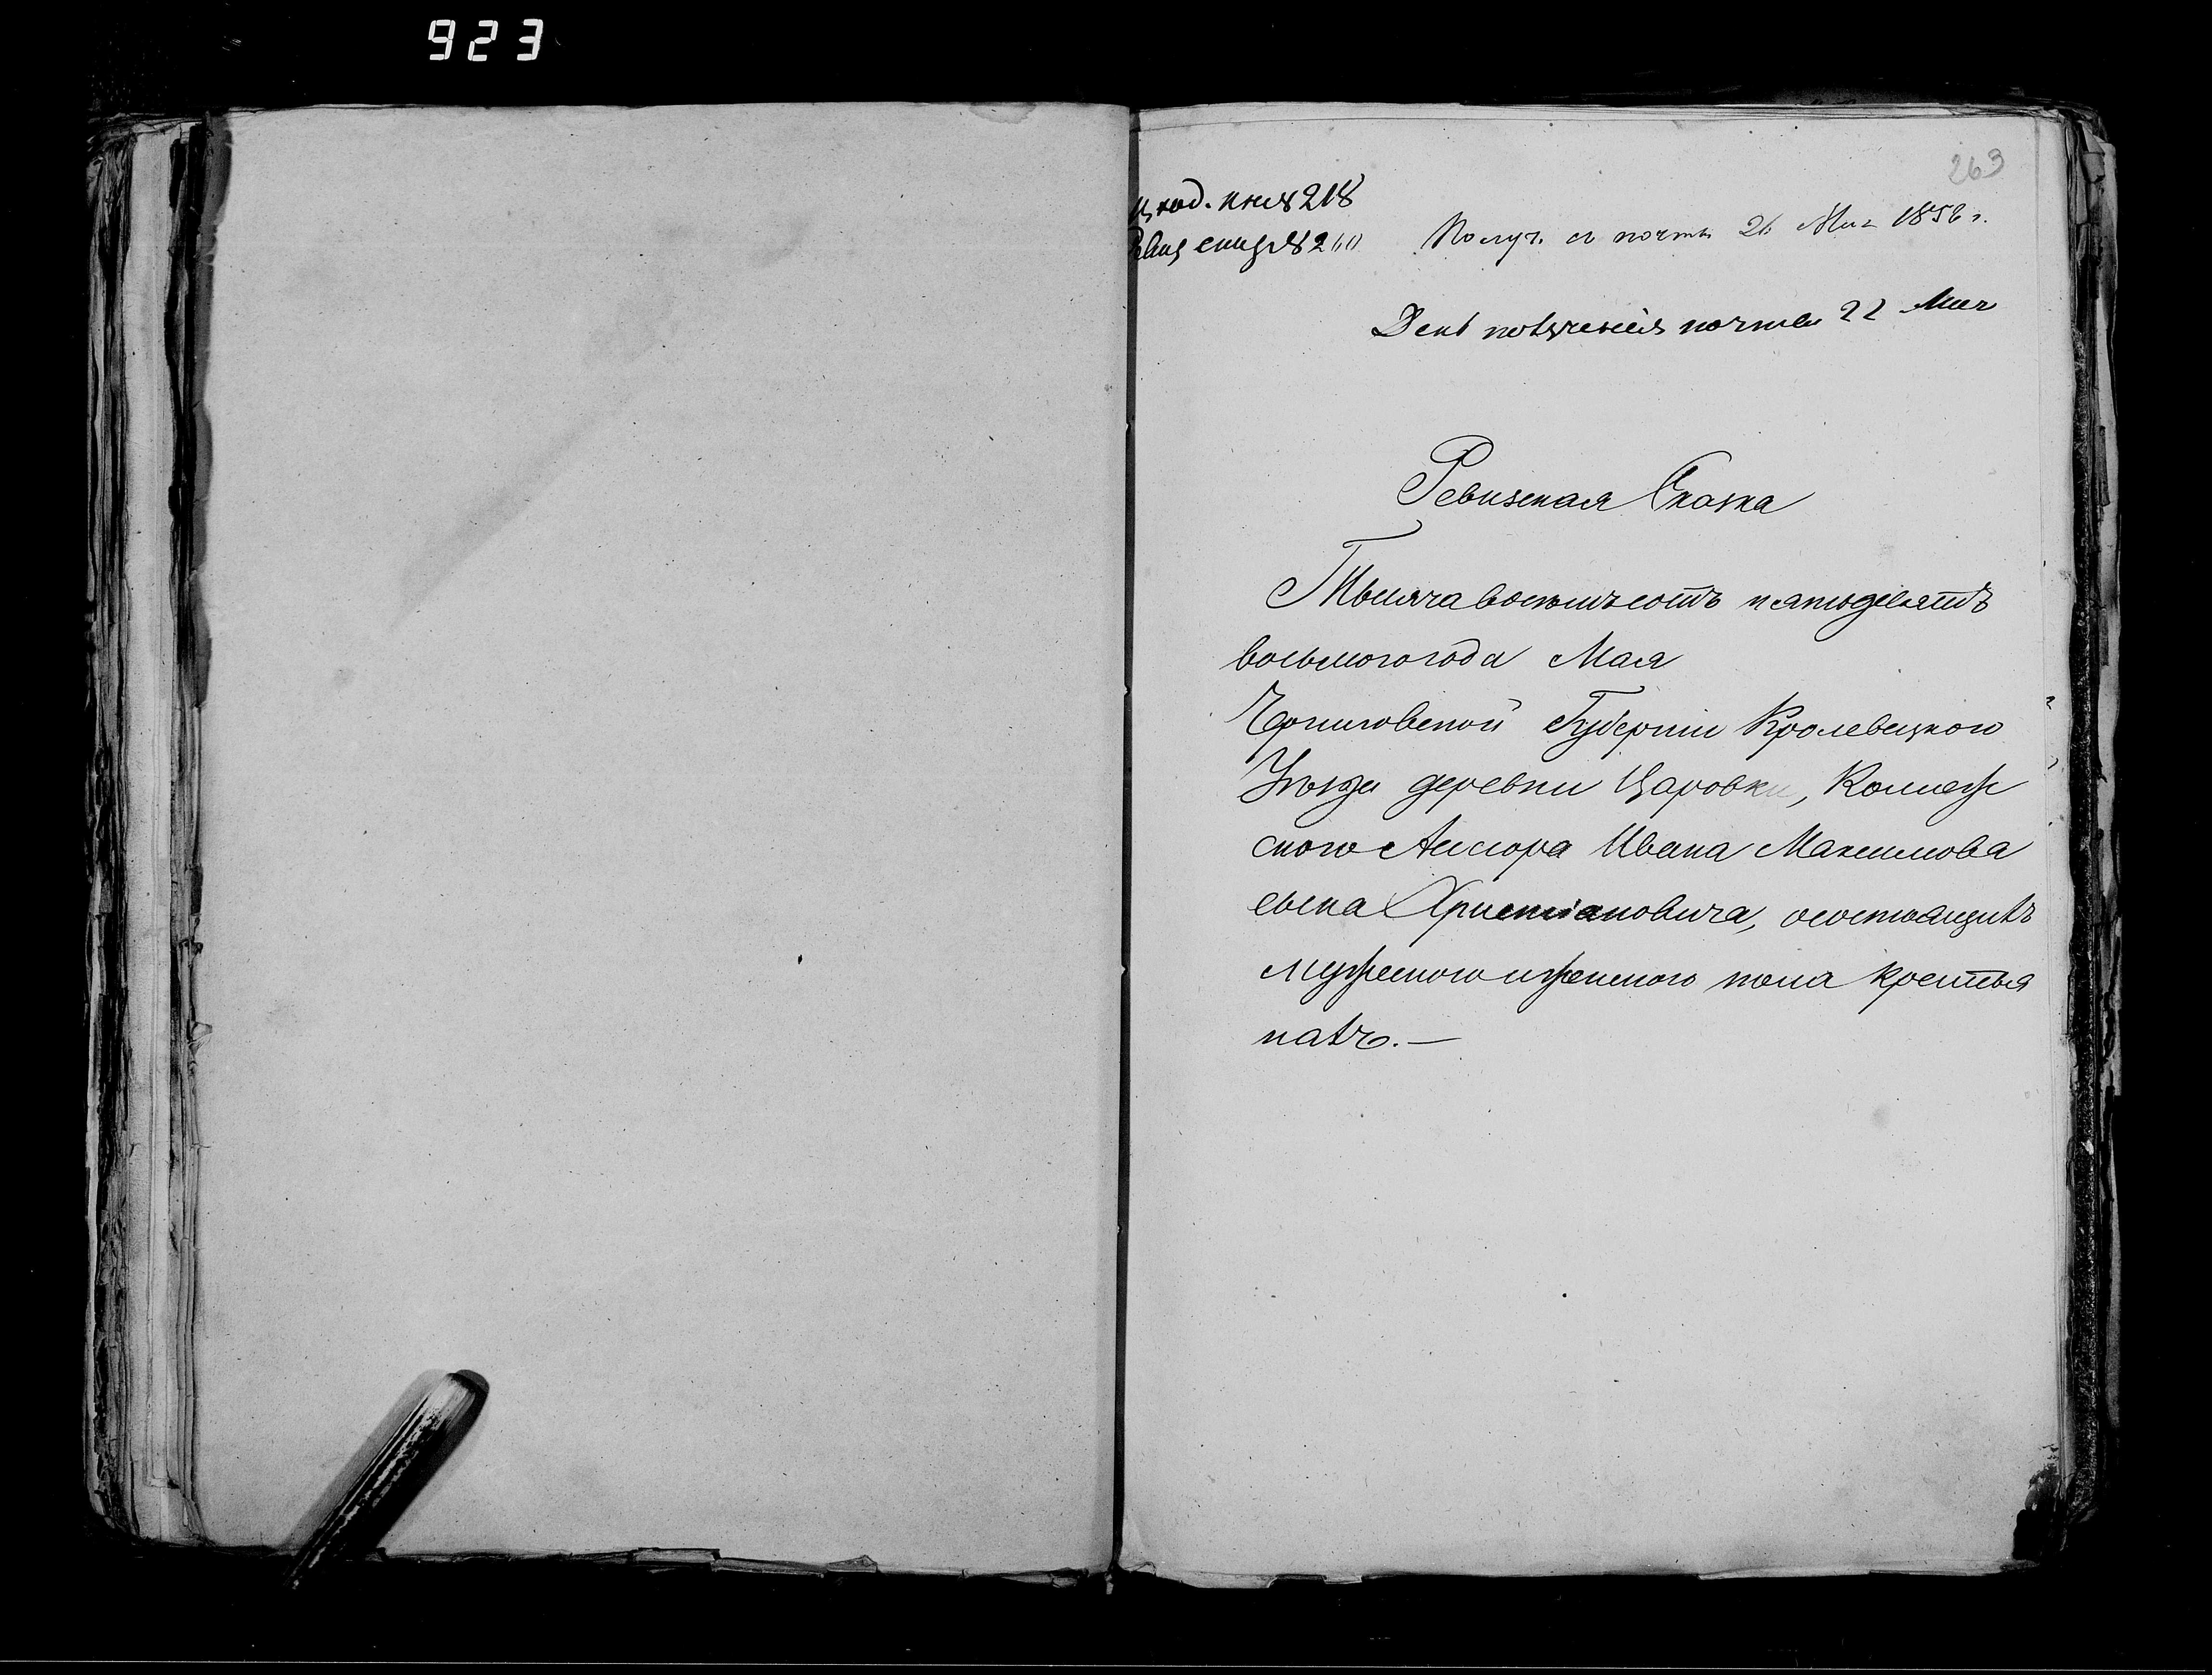 923
263
вход. книг 218
Ревиз 260
Получ. съ почты 21 Мая 1858 г.
День полученія почты 22 Мая
Ревизская Сказка
Тысяча восемьсотъ пятьдесятъ
восьмого года Мая
Черниговской Губерніи Кролевецкого
Уѣзда деревни Царовки, Коллеж
ского Ассесора Ивана Максимова
сына Христiановича, о состоящихъ
мужеского и женского пола крестья
нахъ.—